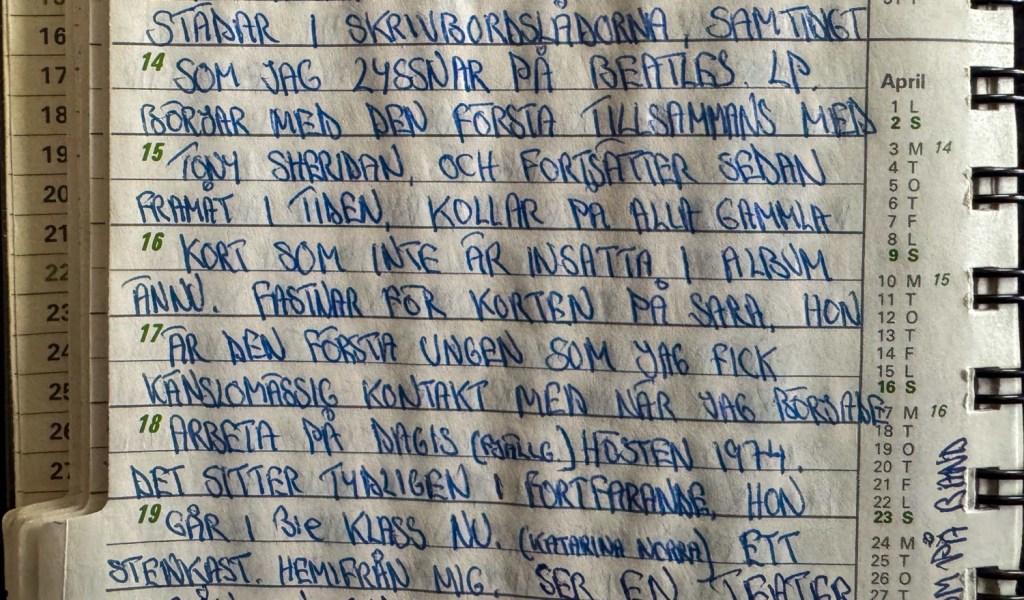 16
17
18
19
20
21
22
23
24
25
26
27
STÄDAR I SKRIVBORDSLÅDORNA, SAMTIDIGT
14 SOM JAG LYSSNAR PÅ BEATLES. LP.
BÖRJAR MED DEN FÖRSTA TILLSAMMANS MED
15 TONY SHERIDAN, OCH FORTSÄTTER SEDAN
FRAMÅT I TIDEN, KOLLAR PÅ ALLA GAMMLA
16 KORT SOM INTE ÄR INSATTA I ALBUM
ÄNNU. FASTNAR FÖR KORTEN PÅ SARA, HON
17 ÄR DEN FÖRSTA UNGEN SOM JAG FICK
KÄNSLOMÄSSIG KONTAKT MED NÄR JAG BÖRJADE
18 ARBETA PÅ DAGIS HÖSTEN 1974.
DET SITTER TYDLIGEN I FORTFARANDE, HON
19 GÅR I 3:e KLASS NU. (KATARINA NORRA) ETT
STENKAST. HEMIFRÅN MIG. SER EN TEATER
April
1 L
2 S
3 M 14
4 T
5 O
6 T
7 F
8 L
9 S
10 M 15
11 T
12 O
13 T
14 F
15 L
16 S
17 M 16
18 T
19 O
20 T
21 F
22 L
23 S
24 M
25 T
26 O
27 T
PÅ BAND